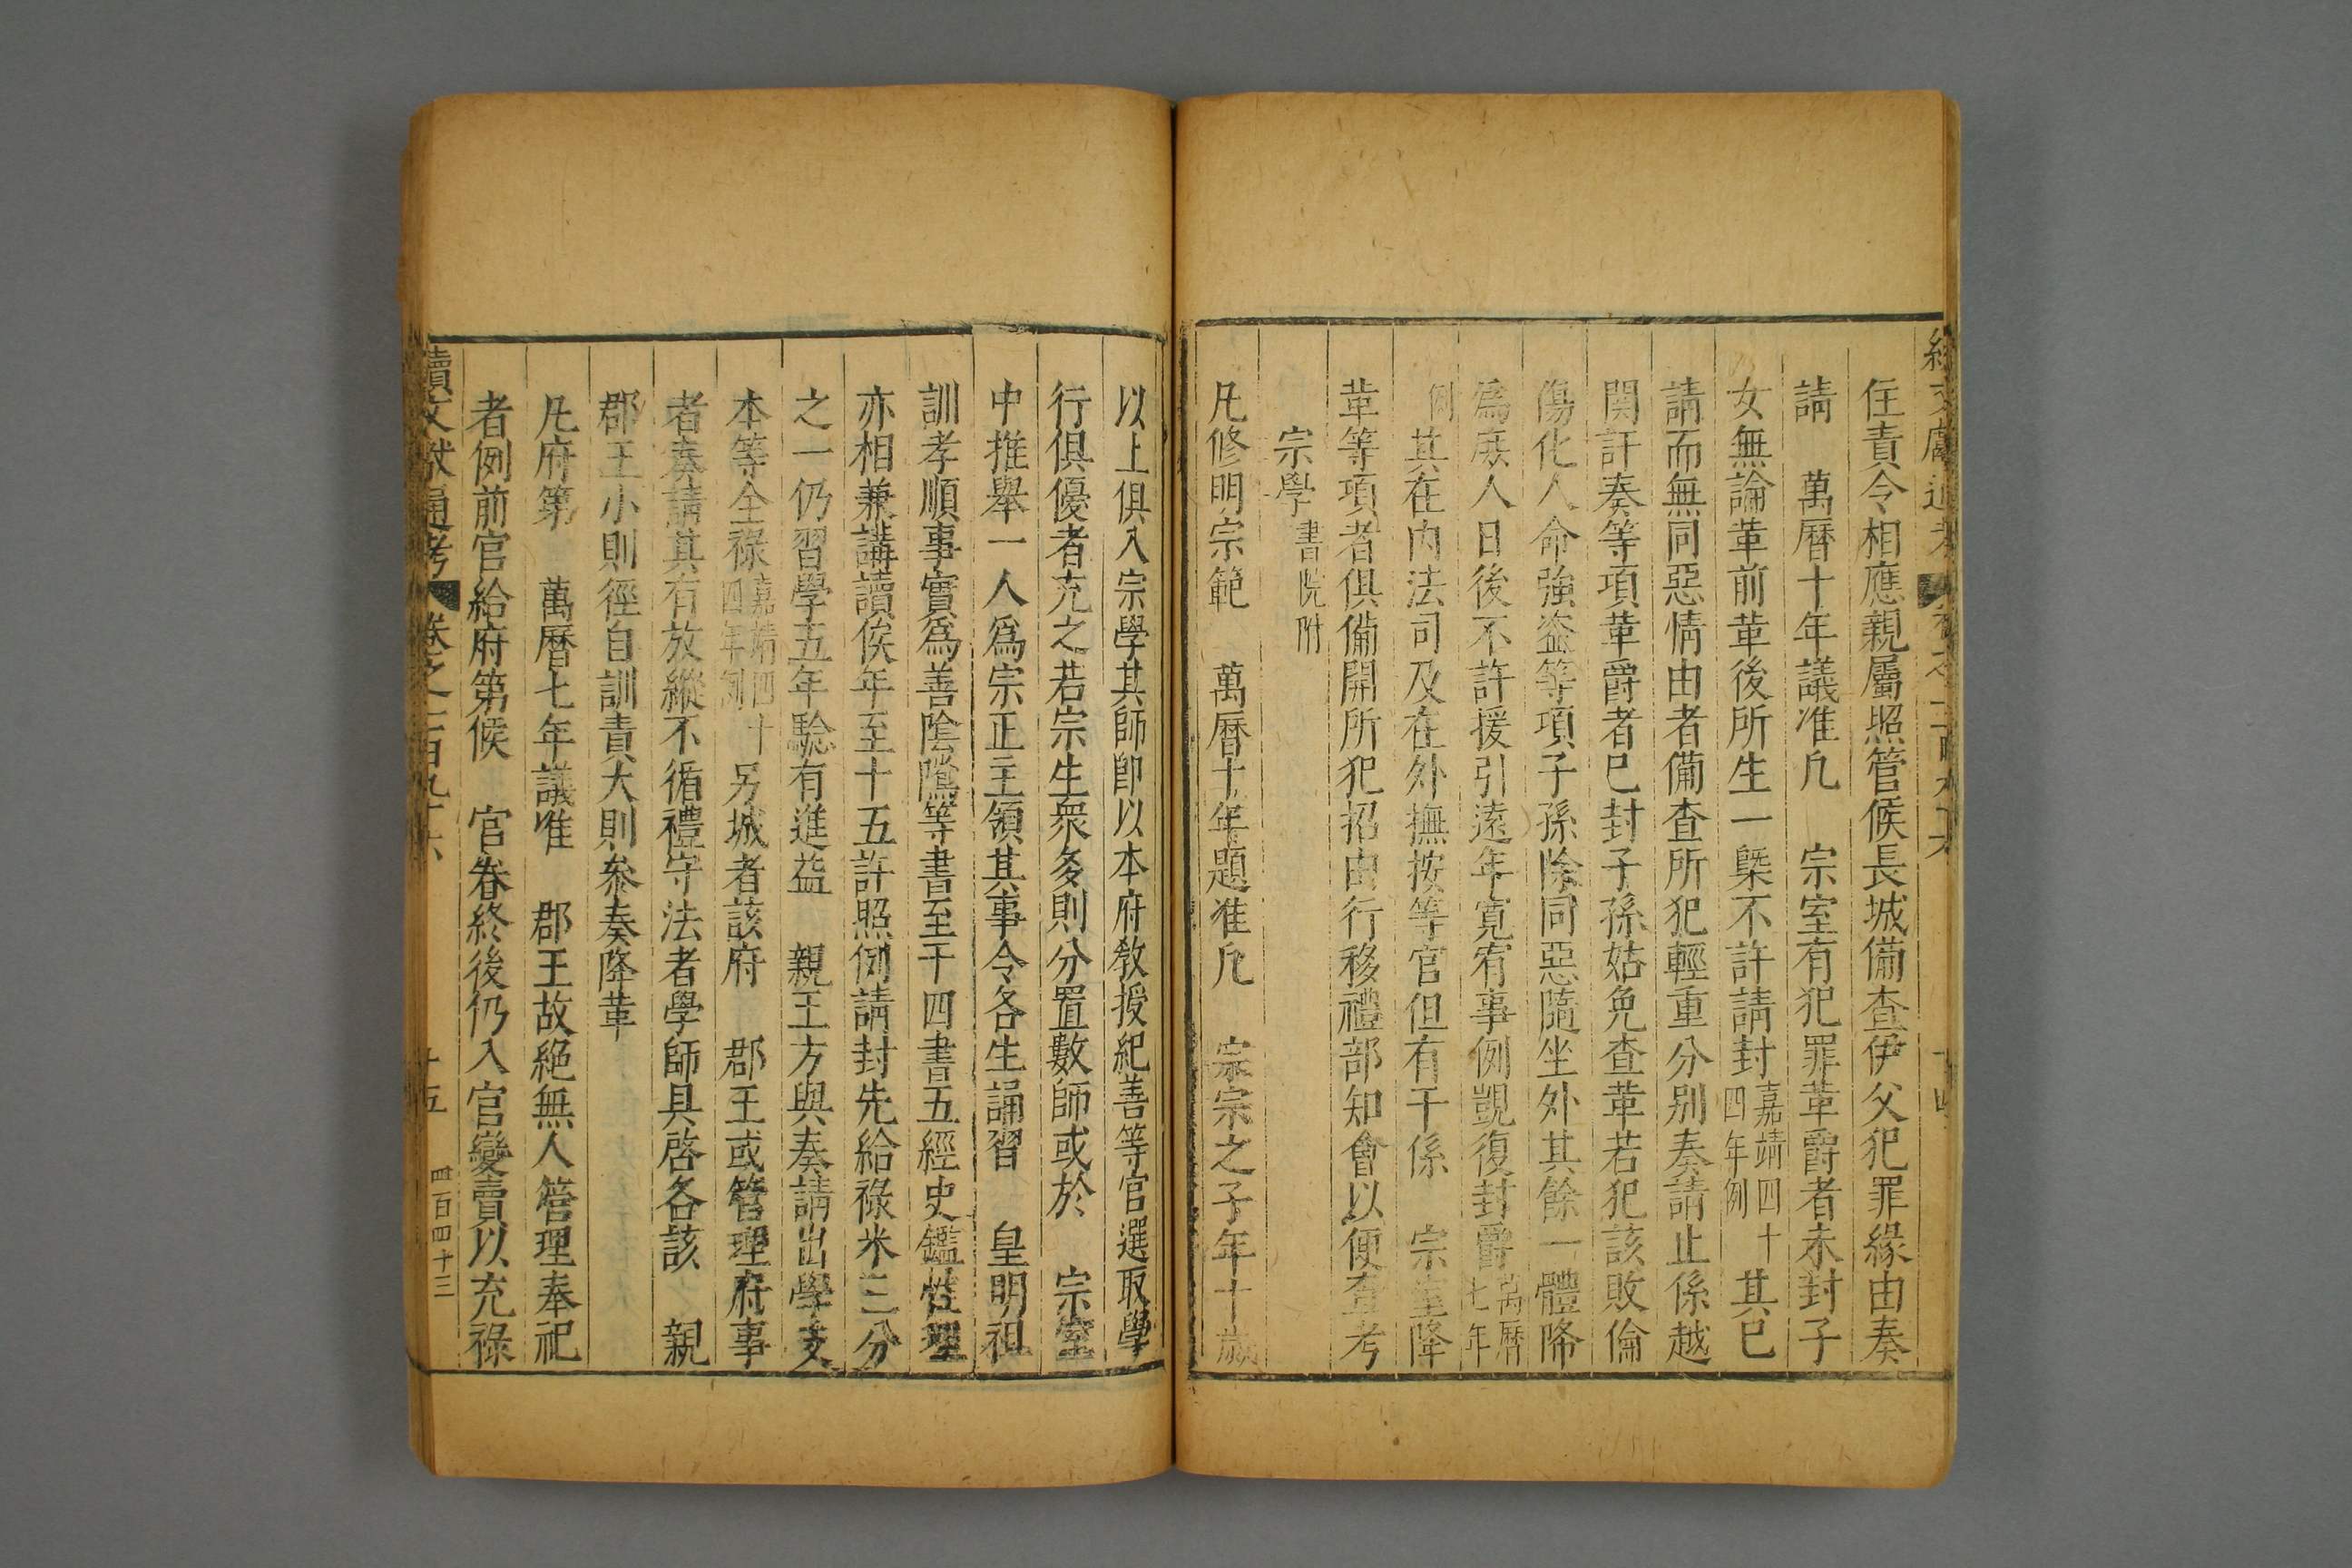 住責令相應親屬照管候長城備查伊父犯罪緣由奏
請　萬曆十年議准凡　宗室有犯罪革爵者未封子
女無論革前革後所生一槩不許請封嘉靖四十四年例其已
請而無同惡情由者備查所犯輕重分別奏請止係越
關訐奏等項革爵者已封子孫姑免查革若犯該敗倫
傷化人命強盗等項子孫除同惡隨坐外其餘一體降
爲庶人日後不許援引遠年寬宥事例覬復封爵萬曆七年
例其在內法司及在外撫按等官但有干係　宗室降
革等項者俱備開所犯招由行移禮部知會以便查考
宗學書院附
凡修明宗範　萬曆十年題准凡　宗宗之子年十歲
以上俱入宗學其師卽以本府敎授紀善等官選取學
行俱優者充之若宗生衆多則分置數師或於　宗室
中推舉一人爲宗正主領其事令各生誦習　皇明祖
訓孝順事實爲善陰隲等書至于四書五經史鑑性理
亦相兼講讀俟年至十五許照例請封先給祿米三分
之一仍習學五年驗有進益　親王方與奏請出學支
本等全祿嘉靖四十四年例另城者該府　郡王或管理府事
者奏請其有放縱不循禮守法者學師具啓各該　親
郡王小則徑自訓責大則叅奏降革
凡府第　萬曆七年議准　郡王故絕無人管理奉祀
者例前官給府第候　官眷終後仍入官變賣以充祿
續文獻通考　卷之一百九十六　十五　四百四十三